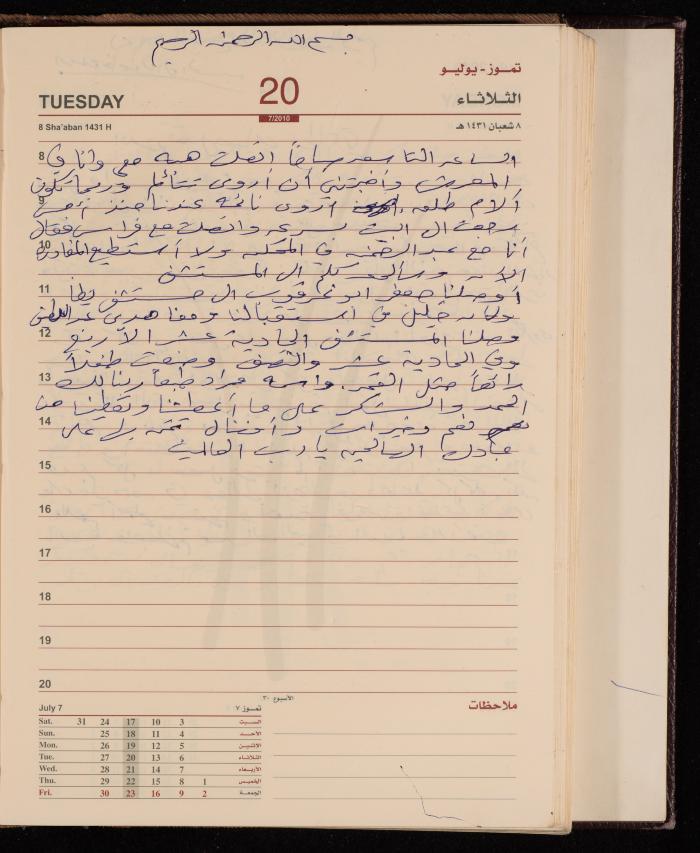 بسم الله الرحمن الرحيم
تموز - يوليو
TUESDAY
20
الثلاثاء
7/2010
8 Sha'aban 1431 H
٨ شعبان ١٤٣١ هـ
8
الساعة التاسعة صباحاً اتصلت هبه معي وأنا في
المعرض وأخبرتني أن أروى تتألم وربما تكون
9
آلام طلق أروى نائمة عندنا منذ أمس
رجعت الى البيت بسرعة واتصلت مع فراس فقال
10
أنا مع عبد الرحمن في المحكمة ولا أستطيع المغادرة
الآن الى المستشفى
11
أوصلنا جعفر أبو الى مستشفى
في استقبالنا ومعنا هدى عبد اللطيف
12
وصلنا المستشفى الحادية عشر الا ربع
وفي الحادية عشر والنصف وضعت طفلاً
13
رائعاً مثل القمر واسمه مراد طبعاً ربنا لك
الحمد والشكر على ما أعطيتنا وتعطينا من
14
نعم وخيرات وأفضال تمن بها على
عبادك الصالحين يا رب العالمين
15
16
17
18
19
20
July 7
تموز ٧
الأسبوع ٣٠
ملاحظات
Sat. 31 24 17 10 3 السبت
Sun. 25 18 11 4 الأحد
Mon. 26 19 12 5 الاثنين
Tue. 27 20 13 6 الثلاثاء
Wed. 28 21 14 7 الأربعاء
Thu. 29 22 15 8 1 الخميس
Fri. 30 23 16 9 2 الجمعة